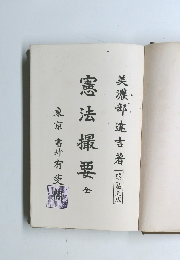 美濃部達吉著
憲法撮要 全
東京 書肆 有斐閣